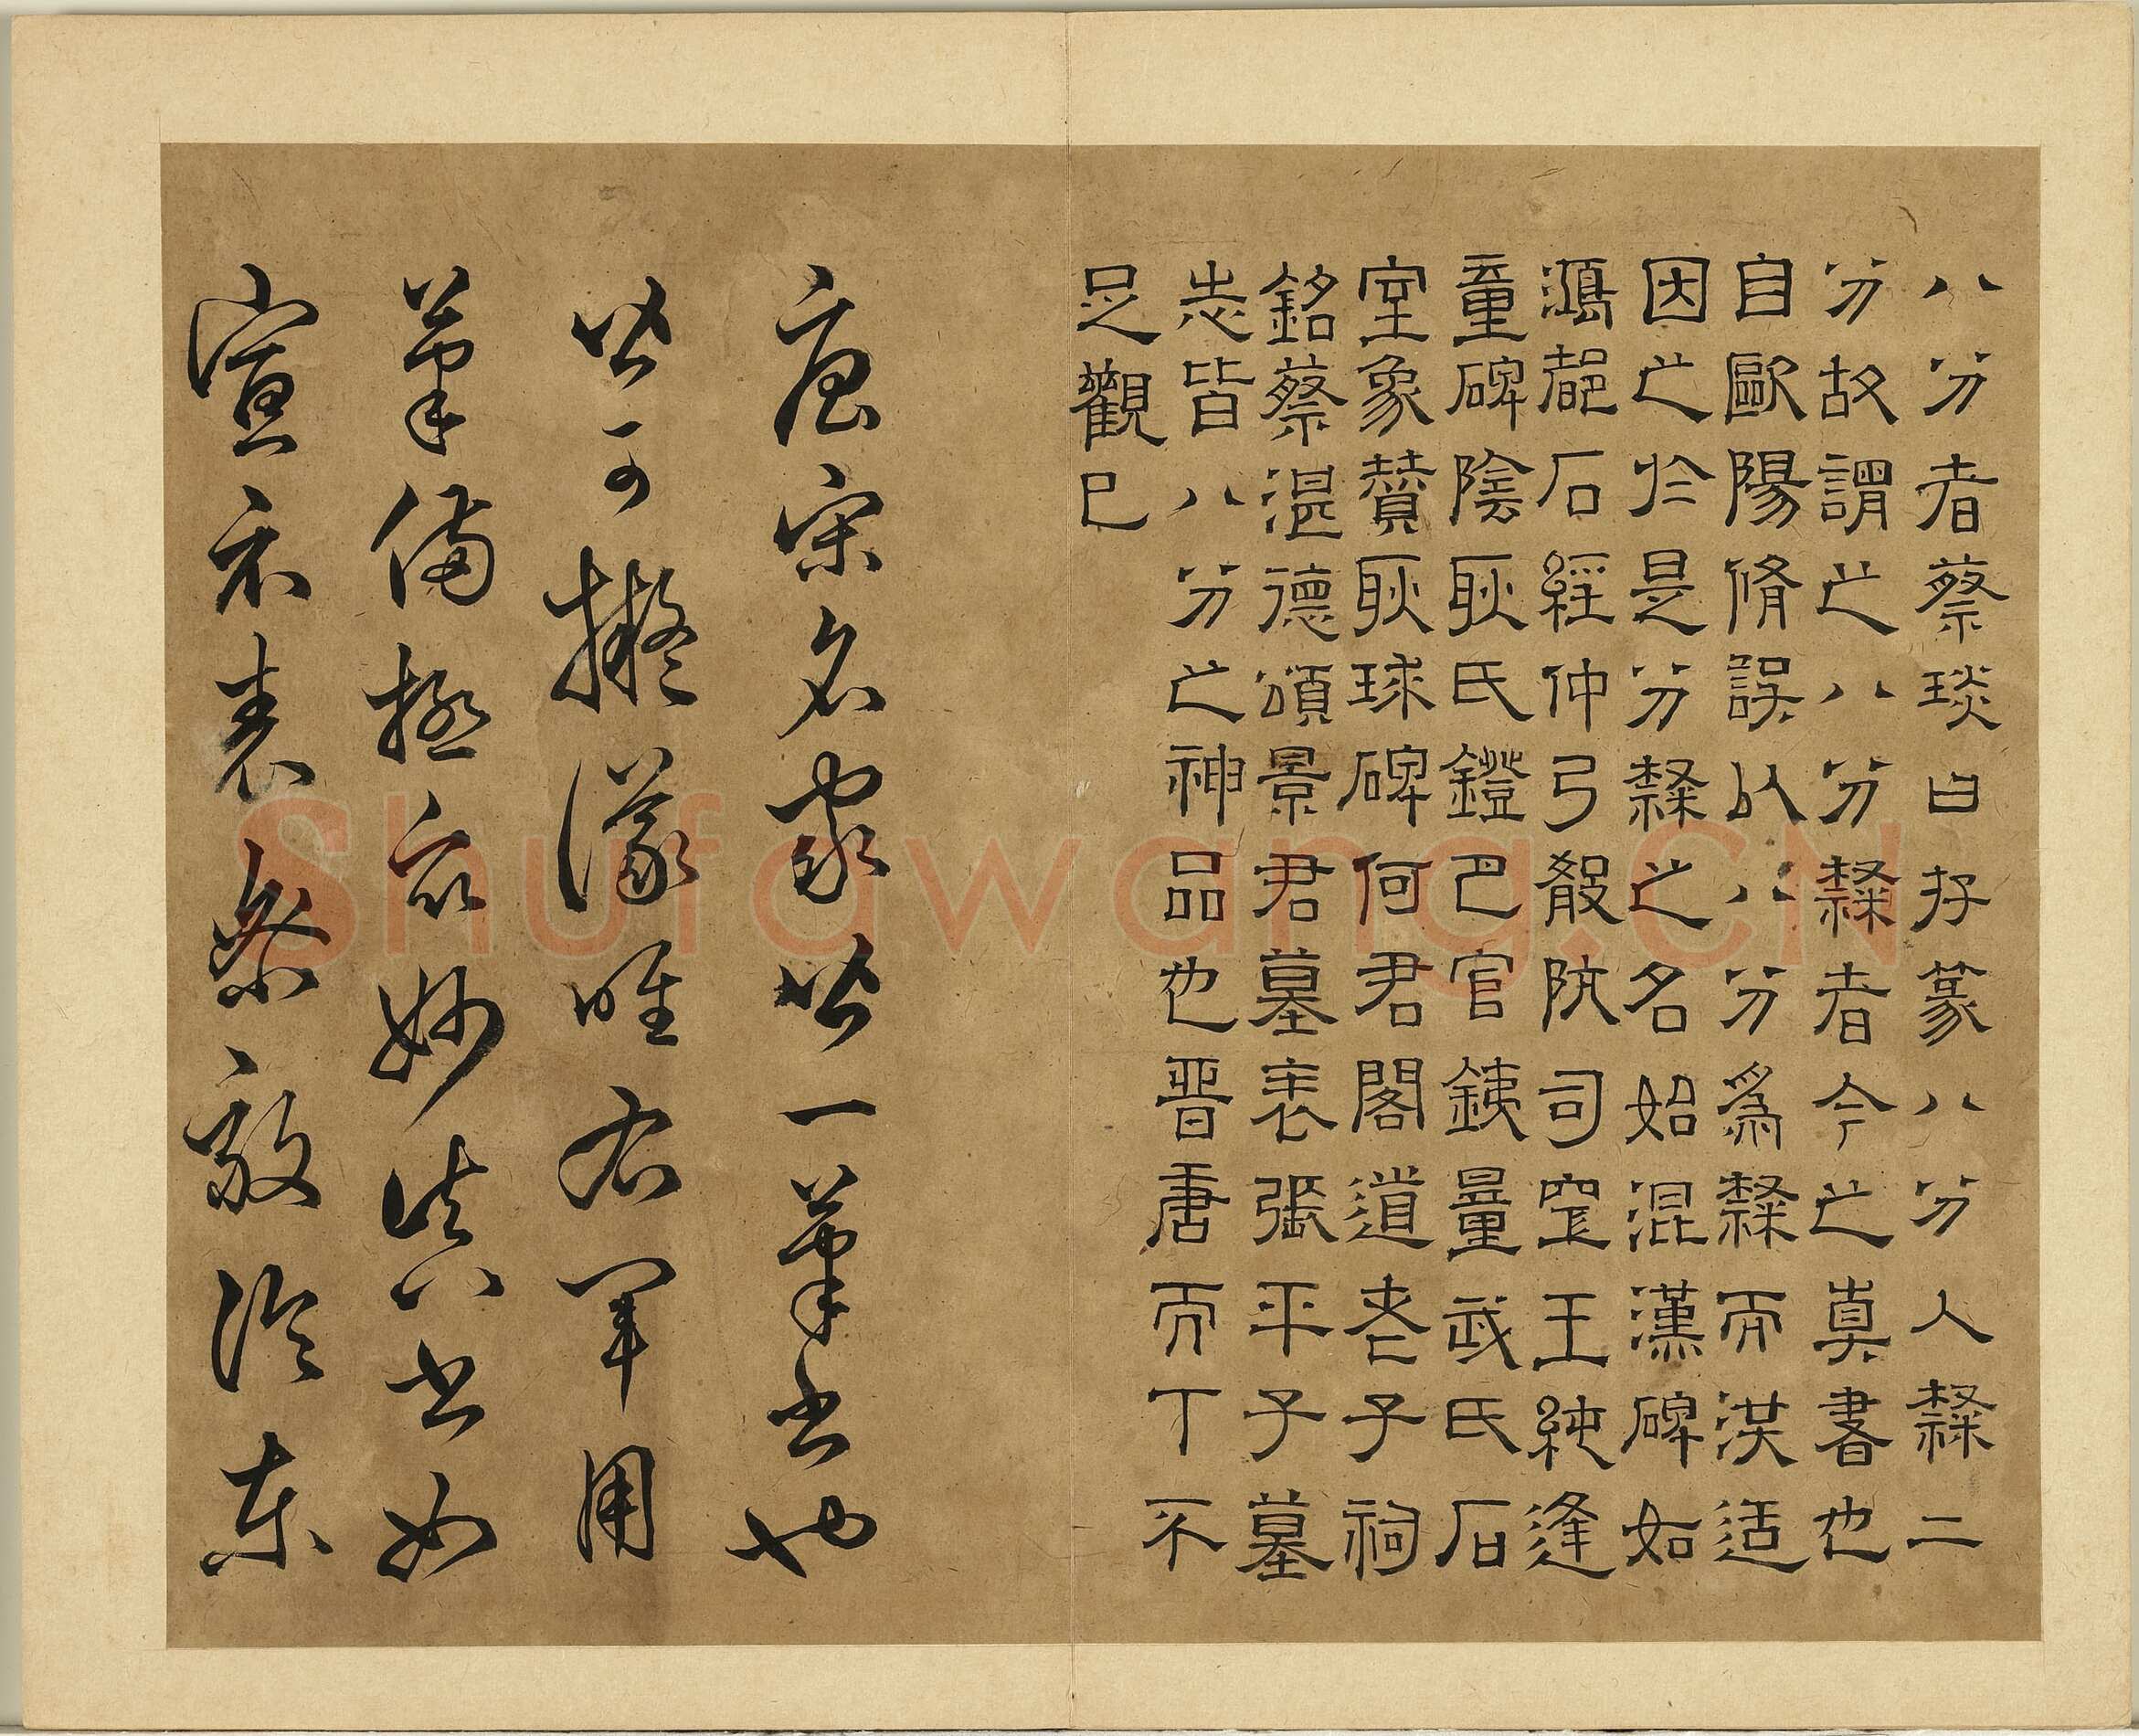 八分者蔡琰曰存篆八分人隸二
分故謂之八分隸者今之真書也
自歐陽脩誤以八分為隸而漢適
因之於是分隸之名始混漢碑如
鴻都石經仲弓殽阬司空王純逢
童碑陰耿氏鐙巴官鐵量武氏石
室象贊耿球碑何君閣道老子祠
銘蔡湛德頌景君墓表張平子墓
志皆八分之神品也晉唐而下不
足觀已
唐宋名家皆一筆書也
皆可擬議唯右軍用
筆備極眾妙真書如
宣示表
Shufawang.CN